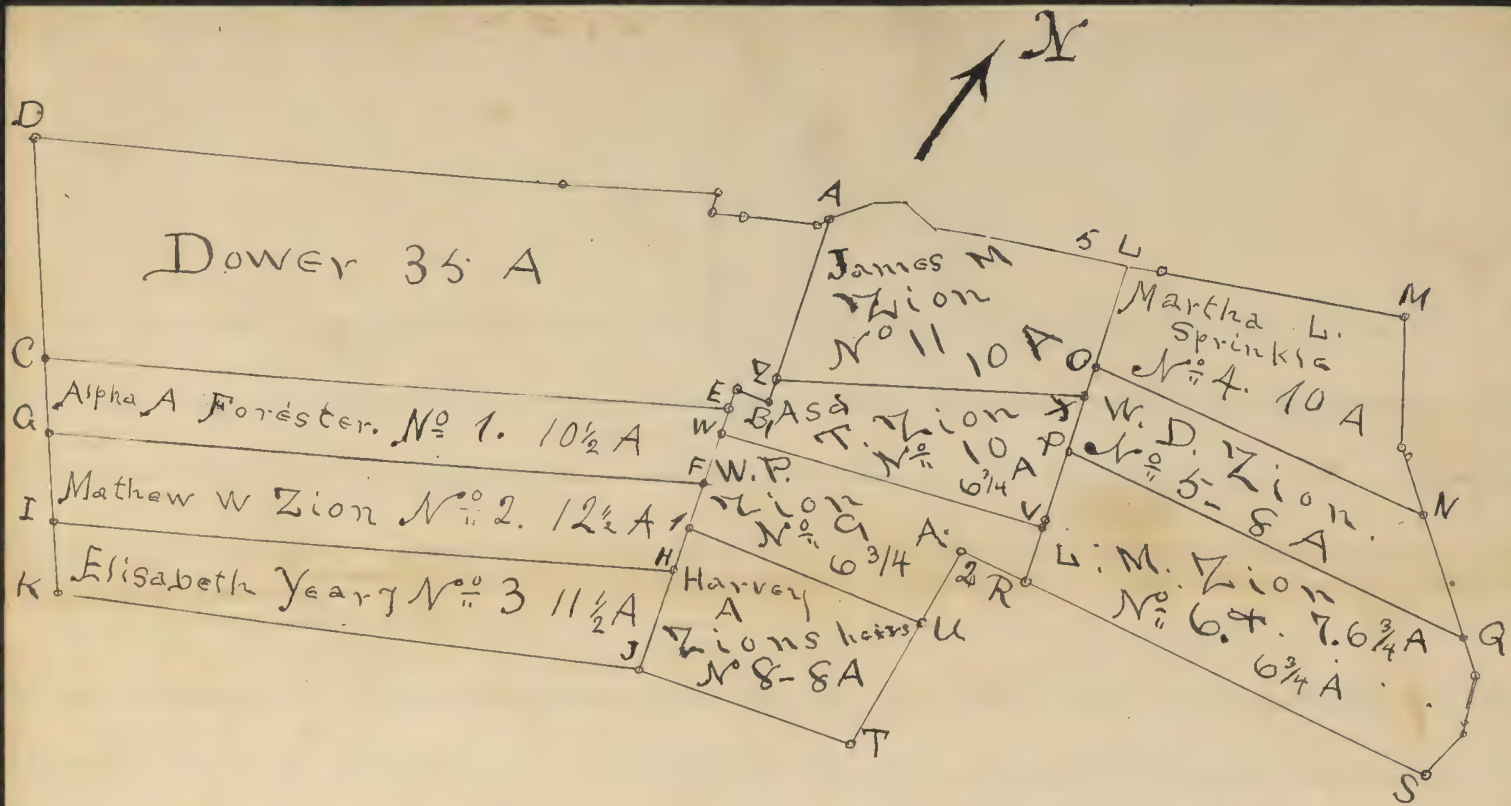 N
D
A
5 L
M
Dower 35 A
James M
Zion
No 11 10 A
O
Martha L.
Sprinkle
No 4. 10 A
C
E
Z
B,
X
Alpha A Forester. No 1. 10 1/2 A
W
Asa
T. Zion
No 10
6 3/4 A
P
W. D. Zion
No 5- 8 A
N
G
F
V
Mathew W Zion No 2. 12 1/2 A
W. P.
Zion
No 9
6 3/4 A.
I
1
H
2
R
L. M. Zion
No 6. & 7. 6 3/4 A
6 3/4 A
Q
K
Elisabeth Yeary No 3 11 1/2 A
Harvey
A
Zions heirs
No 8- 8 A
U
J
T
S